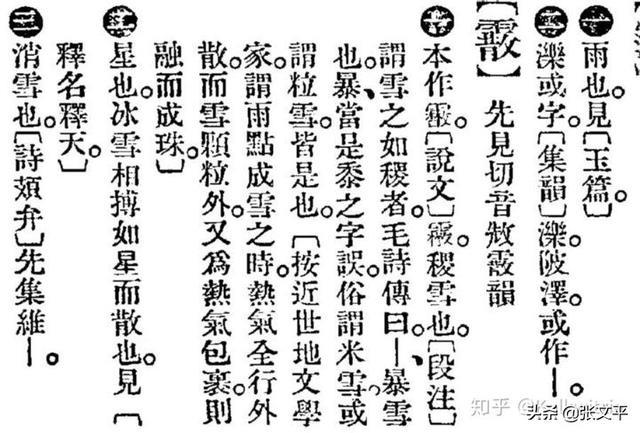 ㊀雨也。見〔玉篇〕
㊁濼或字。〔集韻〕濼陂澤。或作—。
【霰】先見切音散霰韻
㊀本作霰。〔說文〕霰稷雪也。〔段注〕
謂雪之如稷者。毛詩傳曰—、暴雪
也。暴、當是黍之字誤。俗謂米雪。或
謂粒雪。皆是也。〔按近世地文學
家。謂雨點成雪之時。熱氣全行外
散。而雪顆粒外。又爲熱氣包裹。則
融而成珠。〕
㊁星也。冰雪相搏如星而散也。見〔
釋名釋天。〕
㊂消雪也。〔詩頍弁〕先集維—。
知乎
头条 @张文平